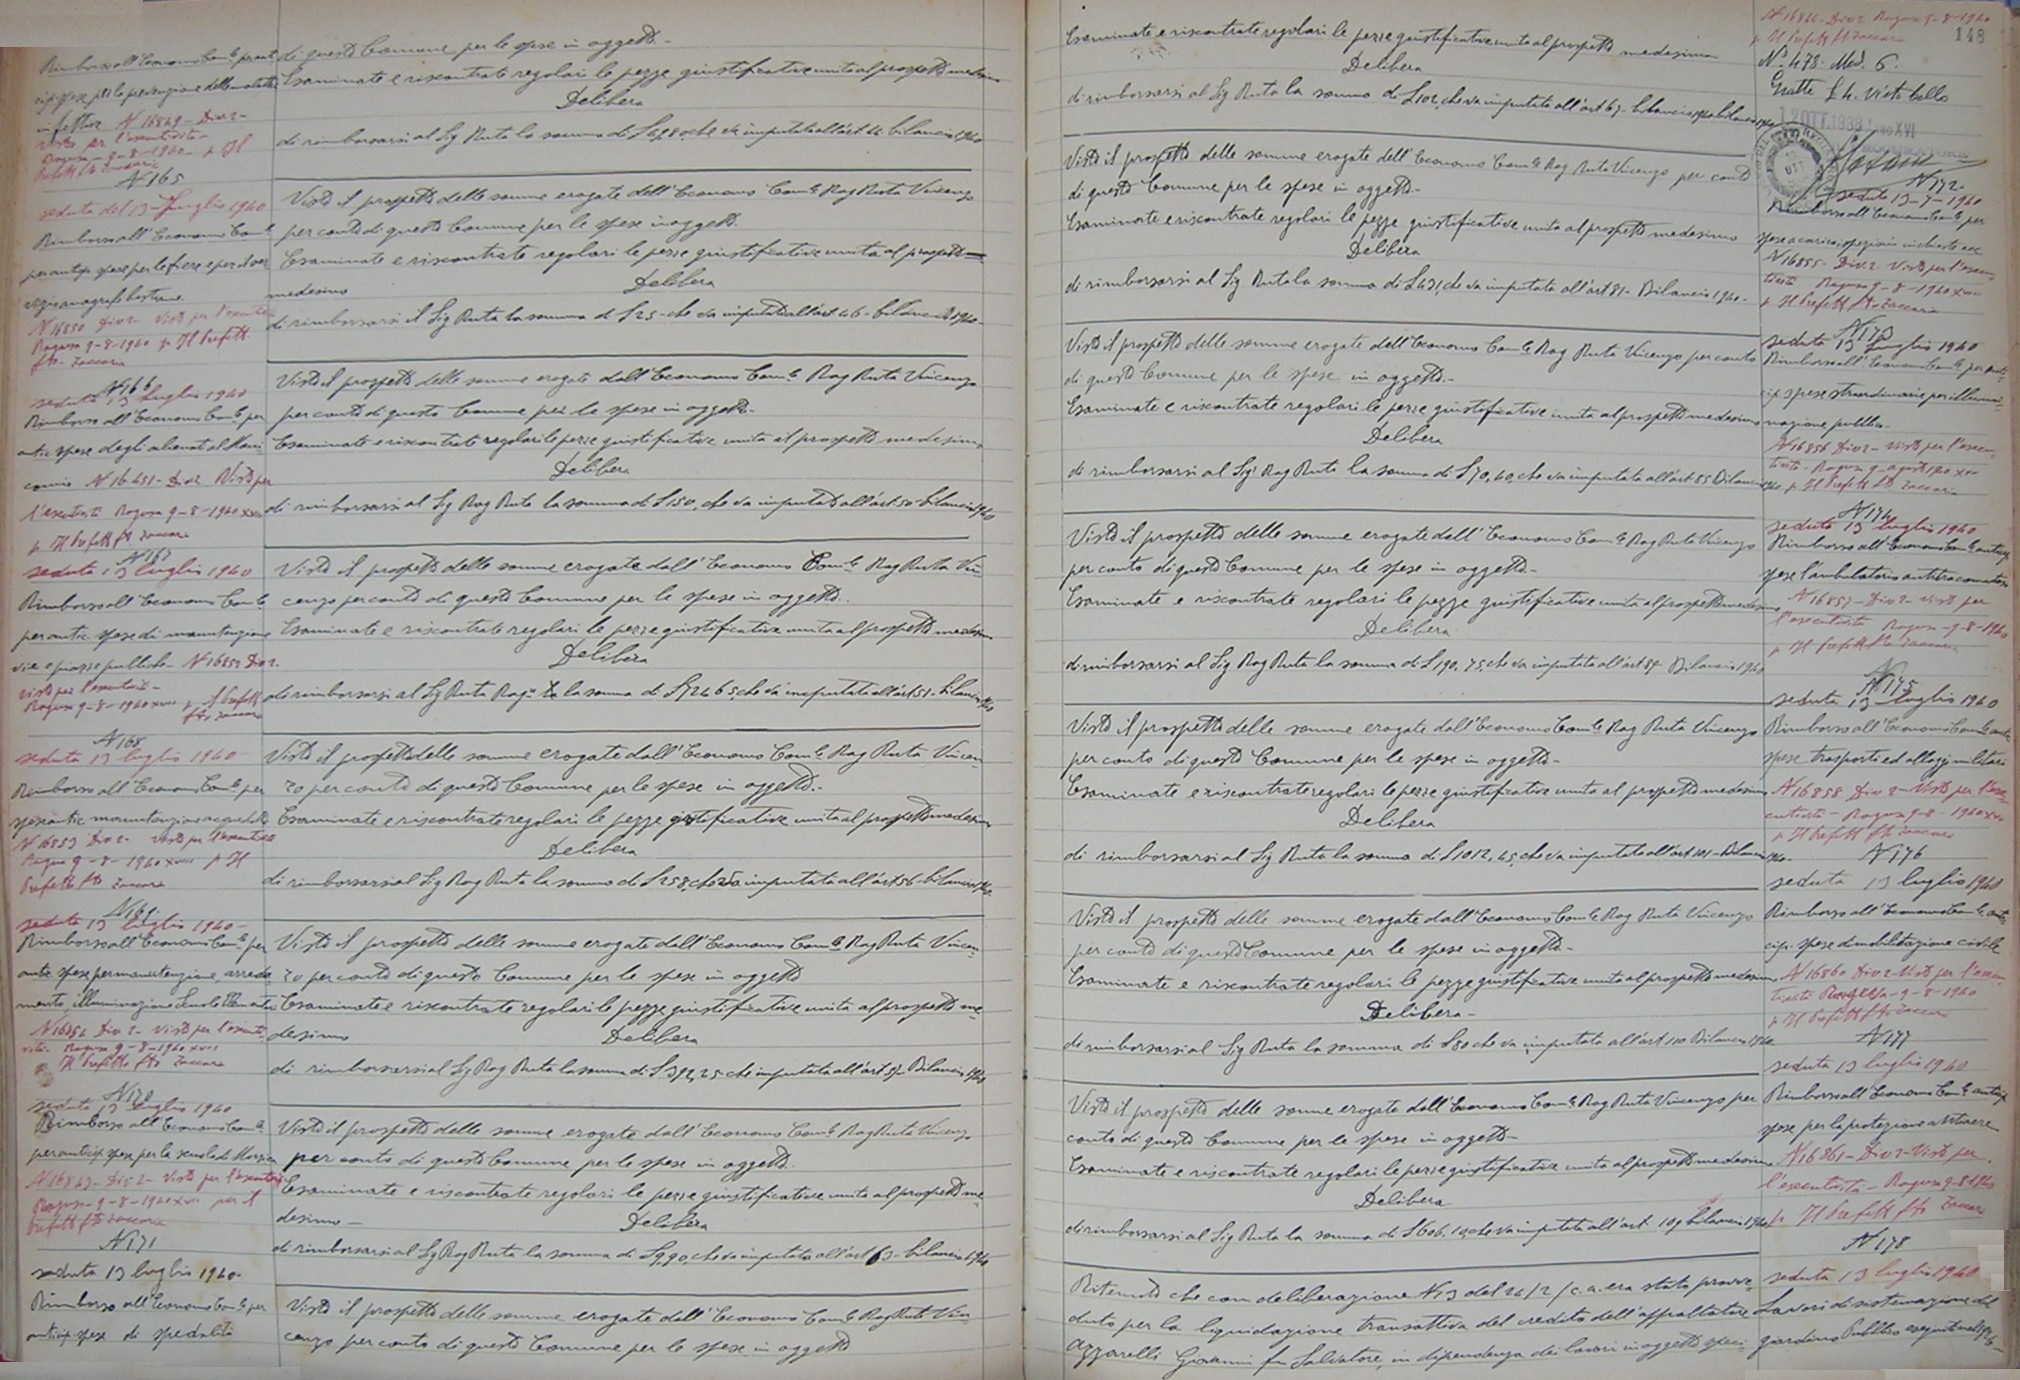 di questo Comune per le spese in oggetto.-
Esaminate e riscontrate regolari le pezze giustificative unite al prospetto medesimo
Delibera
di rimborsarsi al Sig Ruta la somma di che va imputata all'art 44 bilancio 1940
Rimborso all'Economo Com.le
cip. spese per la prevenzione delle malattie
infettive N 16849 - Div 2 -
visto per l'esecutività -
Ragusa - 9 - 8 - 1940 - p Il
Prefetto fto Zaccaria
N 165
seduta del 13 Luglio 1940
Rimborso all'Economo Com.le
per antip. spese per le fiere e per il ser
vizio anagrafe bestiame
N 16850 Div 2 - Visto per l'esecutività
Ragusa 9-8-1940 p Il Prefetto
fto. Zaccaria
Visto il prospetto delle somme erogate dall'Economo Com.le Rag Ruta Vincenzo
per conto di questo Comune per le spese in oggetto.
Esaminate e riscontrate regolari le pezze giustificative unite al prospetto
medesimo Delibera
di rimborsarsi il Sig Ruta la somma di £ 25 - che va imputata all'art 46 - bilancio 1940 -
N 166
seduta 13 Luglio 1940
Rimborso all'Economo Com.le per
antic. spese degli alienati al Mani
comio N 16851 - Div 2 Visto per
l'esecutività Ragusa 9-8-1940 XVIII
p Il Prefetto fto Zaccaria
Visto il prospetto delle somme erogate dall'Economo Com.le Rag Ruta Vincenzo
per conto di questo Comune per le spese in oggetto.
Esaminate e riscontrate regolari le pezze giustificative unite al prospetto medesimo
Delibera
di rimborsarsi al Sig Rag Ruta la somma di £ 150, che va imputata all'art 50 - bilancio 1940
N 167
seduta 13 Luglio 1940
Rimborso all'Economo Com.le
per antic. spese di manutenzione
vie e piazze pubbliche - N 16852 Div 2.
visto per l'esecutività -
Ragusa 9-8-1940 XVIII p Il Prefetto
fto Zaccaria
Visto il prospetto delle somme erogate dall'Economo Com.le Rag Ruta Vin
cenzo per conto di questo Comune per le spese in oggetto.
Esaminate e riscontrate regolari le pezze giustificative unite al prospetto medesimo
Delibera
di rimborsarsi al Sig Ruta Rag. la somma di che va imputata all'art 51 - bilancio 1940
N 168
seduta 13 luglio 1940 -
Rimborso all'Economo Com.le per
spese antic. manutenzione acquedotto
N 16853 Div 2 - Visto per l'esecutività
Ragusa 9-8-1940 XVIII p Il
Prefetto fto Zaccaria
Visto il prospetto delle somme erogate dall'Economo Com.le Rag Ruta Vincen
zo per conto di questo Comune per le spese in oggetto.-
Esaminate e riscontrate regolari le pezze giustificative unite al prospetto medesimo
Delibera
di rimborsarsi al Sig Rag Ruta la somma di £ 258, che va imputata all'art 56 - bilancio 1940.
N 169.
seduta 13 luglio 1940 -
Rimborso all'Economo Com.le per
antic. spese per manutenzione, arreda
mento illuminazione Scuole Elementari
N 16854 Div 2 - Visto per l'esecuti
vità - Ragusa 9-8-1940 XVIII
Il Prefetto fto Zaccaria
Visto il prospetto delle somme erogate dall'Economo Com.le Rag Ruta Vincen
zo per conto di questo Comune per le spese in oggetto
Esaminate e riscontrate regolari le pezze giustificative unite al prospetto me
desimo Delibera
di rimborsarsi al Sig Rag Ruta la somma di £ 392,25 che imputata all'art 57 - Bilancio 1940
N 170
seduta 13 Luglio 1940
Rimborso all'Economo Com.le
per anticip spese per la scuola di Musica
N 16843 - Div 2 - Visto per l'esecutività
Ragusa - 9-8-1940 XVIII per Il
Prefetto fto Zaccaria
Visto il prospetto delle somme erogate dall'Economo Com.le Rag Ruta Vincenzo
per conto di questo Comune per le spese in oggetto.
Esaminate e riscontrate regolari le pezze giustificative unite al prospetto me
desimo - Delibera
di rimborsarsi al Sig Rag Ruta la somma di che va imputata all'art 63 - bilancio 1940
N 171
seduta 13 luglio 1940 -
Rimborso all'Economo Com.le per
anticip. spese di spedalità
Visto il prospetto delle somme erogate dall'Economo Com.le Rag Ruta Vin
cenzo per conto di questo Comune per le spese in oggetto
Esaminate e riscontrate regolari le pezze giustificative unite al prospetto medesimo
Delibera
di rimborsarsi al Sig Ruta la somma di £ 102, che va imputata all'art 67 - bilancio 1940
N 16844 - Div 2 Ragusa 9-8-1940
p Il Prefetto fto Zaccaria
148
N. 478. Mod. 6.
Gratte
OTT. 1939 ANNO XVI
Visto il prospetto delle somme erogate dall'Economo Com.le Rag Ruta Vincenzo per conto
di questo Comune per le spese in oggetto.-
Esaminate e riscontrate regolari le pezze giustificative unite al prospetto medesimo
Delibera
di rimborsarsi al Sig Ruta la somma di £ 431, che va imputata all'art 81 - Bilancio 1940 -
N 172.
seduta 13-7-1940
Rimborso all'Economo Com.le per
spese a carico ispezioni inchieste ecc
N 16855 - Div 2 Visto per l'esecu
tività Ragusa 9-8-1940 XVIII
p Il Prefetto fto Zaccaria
Visto il prospetto delle somme erogate dall'Economo Com.le Rag Ruta Vincenzo per conto
di questo Comune per le spese in oggetto.-
Esaminate e riscontrate regolari le pezze giustificative unite al prospetto medesimo
Delibera
di rimborsarsi al Sig Rag Ruta la somma di £ 70,40, che va imputata all'art 85 Bilancio 1940
N 173
seduta 13 luglio 1940
Rimborso all'Economo Com.le per anti
cip. spese straordinarie per illumi
nazione pubblica.
N 16856 Div 2 - visto per l'esecu
tività - Ragusa 9 - agosto 1940 XVIII
p Il Prefetto fto Zaccaria
Visto il prospetto delle somme erogate dall'Economo Com.le Rag Ruta Vincenzo
per conto di questo Comune per le spese in oggetto -
Esaminate e riscontrate regolari le pezze giustificative unite al prospetto medesimo
Delibera
di rimborsarsi al Sig Rag Ruta la somma di £ 190,75, che va imputata all'art 87 Bilancio 1940
N 174
seduta 13 Luglio 1940
Rimborso all'Economo Com.le anticip
spese l'ambulatorio antitracomatoso
N 16857 - Div 2 - visto per
l'esecutività Ragusa - 9-8-1940
p Il Prefetto fto Zaccaria
N 175
seduta 13 luglio 1940
Rimborso all'Economo Com.le antic
spese trasporti ed alloggi militari
N 16858 Div 2 - Visto per l'ese
cutività - Ragusa 9-8-1940 XVIII
p Il Prefetto fto Zaccaria
Visto il prospetto delle somme erogate dall'Economo Com.le Rag Ruta Vincenzo
per conto di questo Comune per le spese in oggetto -
Esaminate e riscontrate regolari le pezze giustificative unite al prospetto medesimo
Delibera
di rimborsarsi al Sig Ruta la somma di £ 1012,45, che va imputata all'art 101 - Bilancio 1940 -
N 176
seduta 13 luglio 1940
Rimborso all'Economo Com.le anti
cip. spese di mobilitazione civile
N 16860 Div 2 - Visto per l'esecu
tività Ragusa - 9-8-1940
p Il Prefetto fto Zaccaria
Visto il prospetto delle somme erogate dall'Economo Com.le Rag Ruta Vincenzo
per conto di questo Comune per le spese in oggetto -
Esaminate e riscontrate regolari le pezze giustificative unite al prospetto medesimo
Delibera -
di rimborsarsi al Sig Ruta la somma di £ 80 che va imputata all'art 110 Bilancio 1940
N 177
seduta 13 luglio 1940
Rimborso all'Economo Com.le anticip
spese per la protezione antiaerea
N 16861 - Div 2 - Visto per
l'esecutività - Ragusa 9-8-1940
p Il Prefetto fto Zaccaria
Visto il prospetto delle somme erogate dall'Economo Com.le Rag Ruta Vincenzo per
conto di questo Comune per le spese in oggetto -
Esaminate e riscontrate regolari le pezze giustificative unite al prospetto medesimo
Delibera
di rimborsarsi al Sig Ruta la somma di che va imputata all'art 109 bilancio 1940
N 178
seduta 13 luglio 1940
Lavori di sistemazione del
giardino Pubblico eseguiti
Ritenuto che con deliberazione N 3 del 24/2/c.a. era stato provve
duto per la liquidazione transattiva del credito dell'appaltatore
Azzarelli Giovanni fu Salvatore, in dipendenza dei lavori in oggetto speci